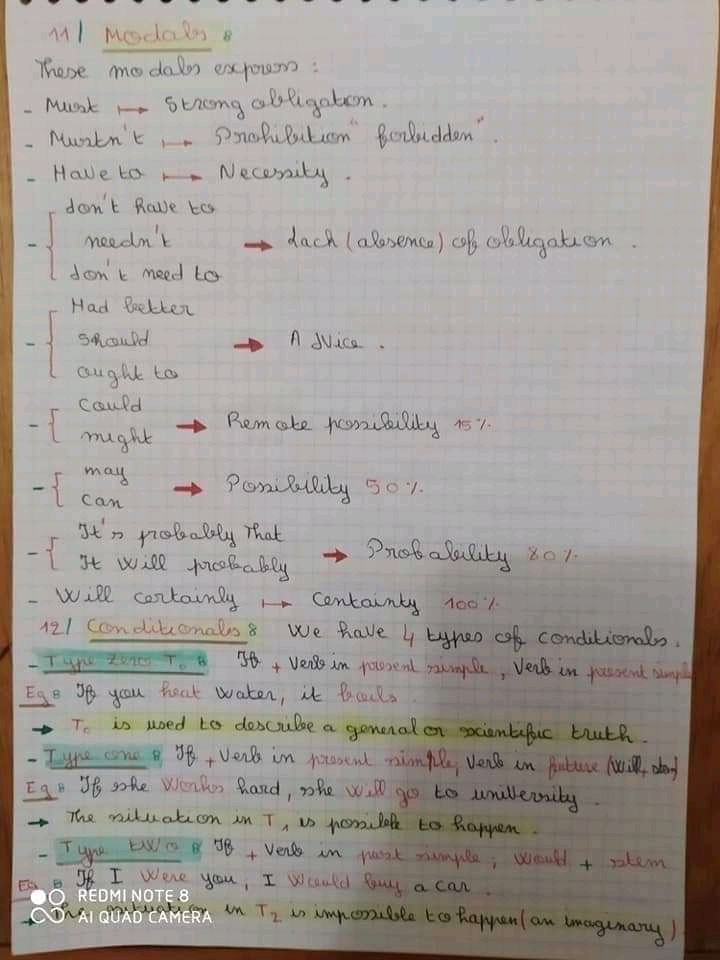 11/ Modals :
These modals express :
- Must ↦ Strong obligation.
- Mustn't ↦ Prohibition "forbidden".
- Have to ↦ Necessity.
don't have to
- needn't → Lack (absence) of obligation.
don't need to
Had better
- should → Advice.
ought to
- could
might → Remote possibility 15%
- may
can → Possibility 50%
- It's probably that
It will probably → Probability 80%
- Will certainly ↦ Centainty 100%
12/ Conditionals : We have 4 types of conditionals.
- Type zero T0 : If + Verb in present simple, Verb in present simple
Eg : If you heat water, it boils.
→ T0 is used to describe a general or scientific truth.
- Type one : If + Verb in present simple, Verb in future (will + stem)
Eg : If she works hard, she will go to university.
→ The situation in T1 is possible to happen.
- Type two : If + Verb in past simple, would + stem
Eg : If I were you, I would buy a car.
→ The situation in T2 is impossible to happen (an imaginary)
REDMI NOTE 8
AI QUAD CAMERA